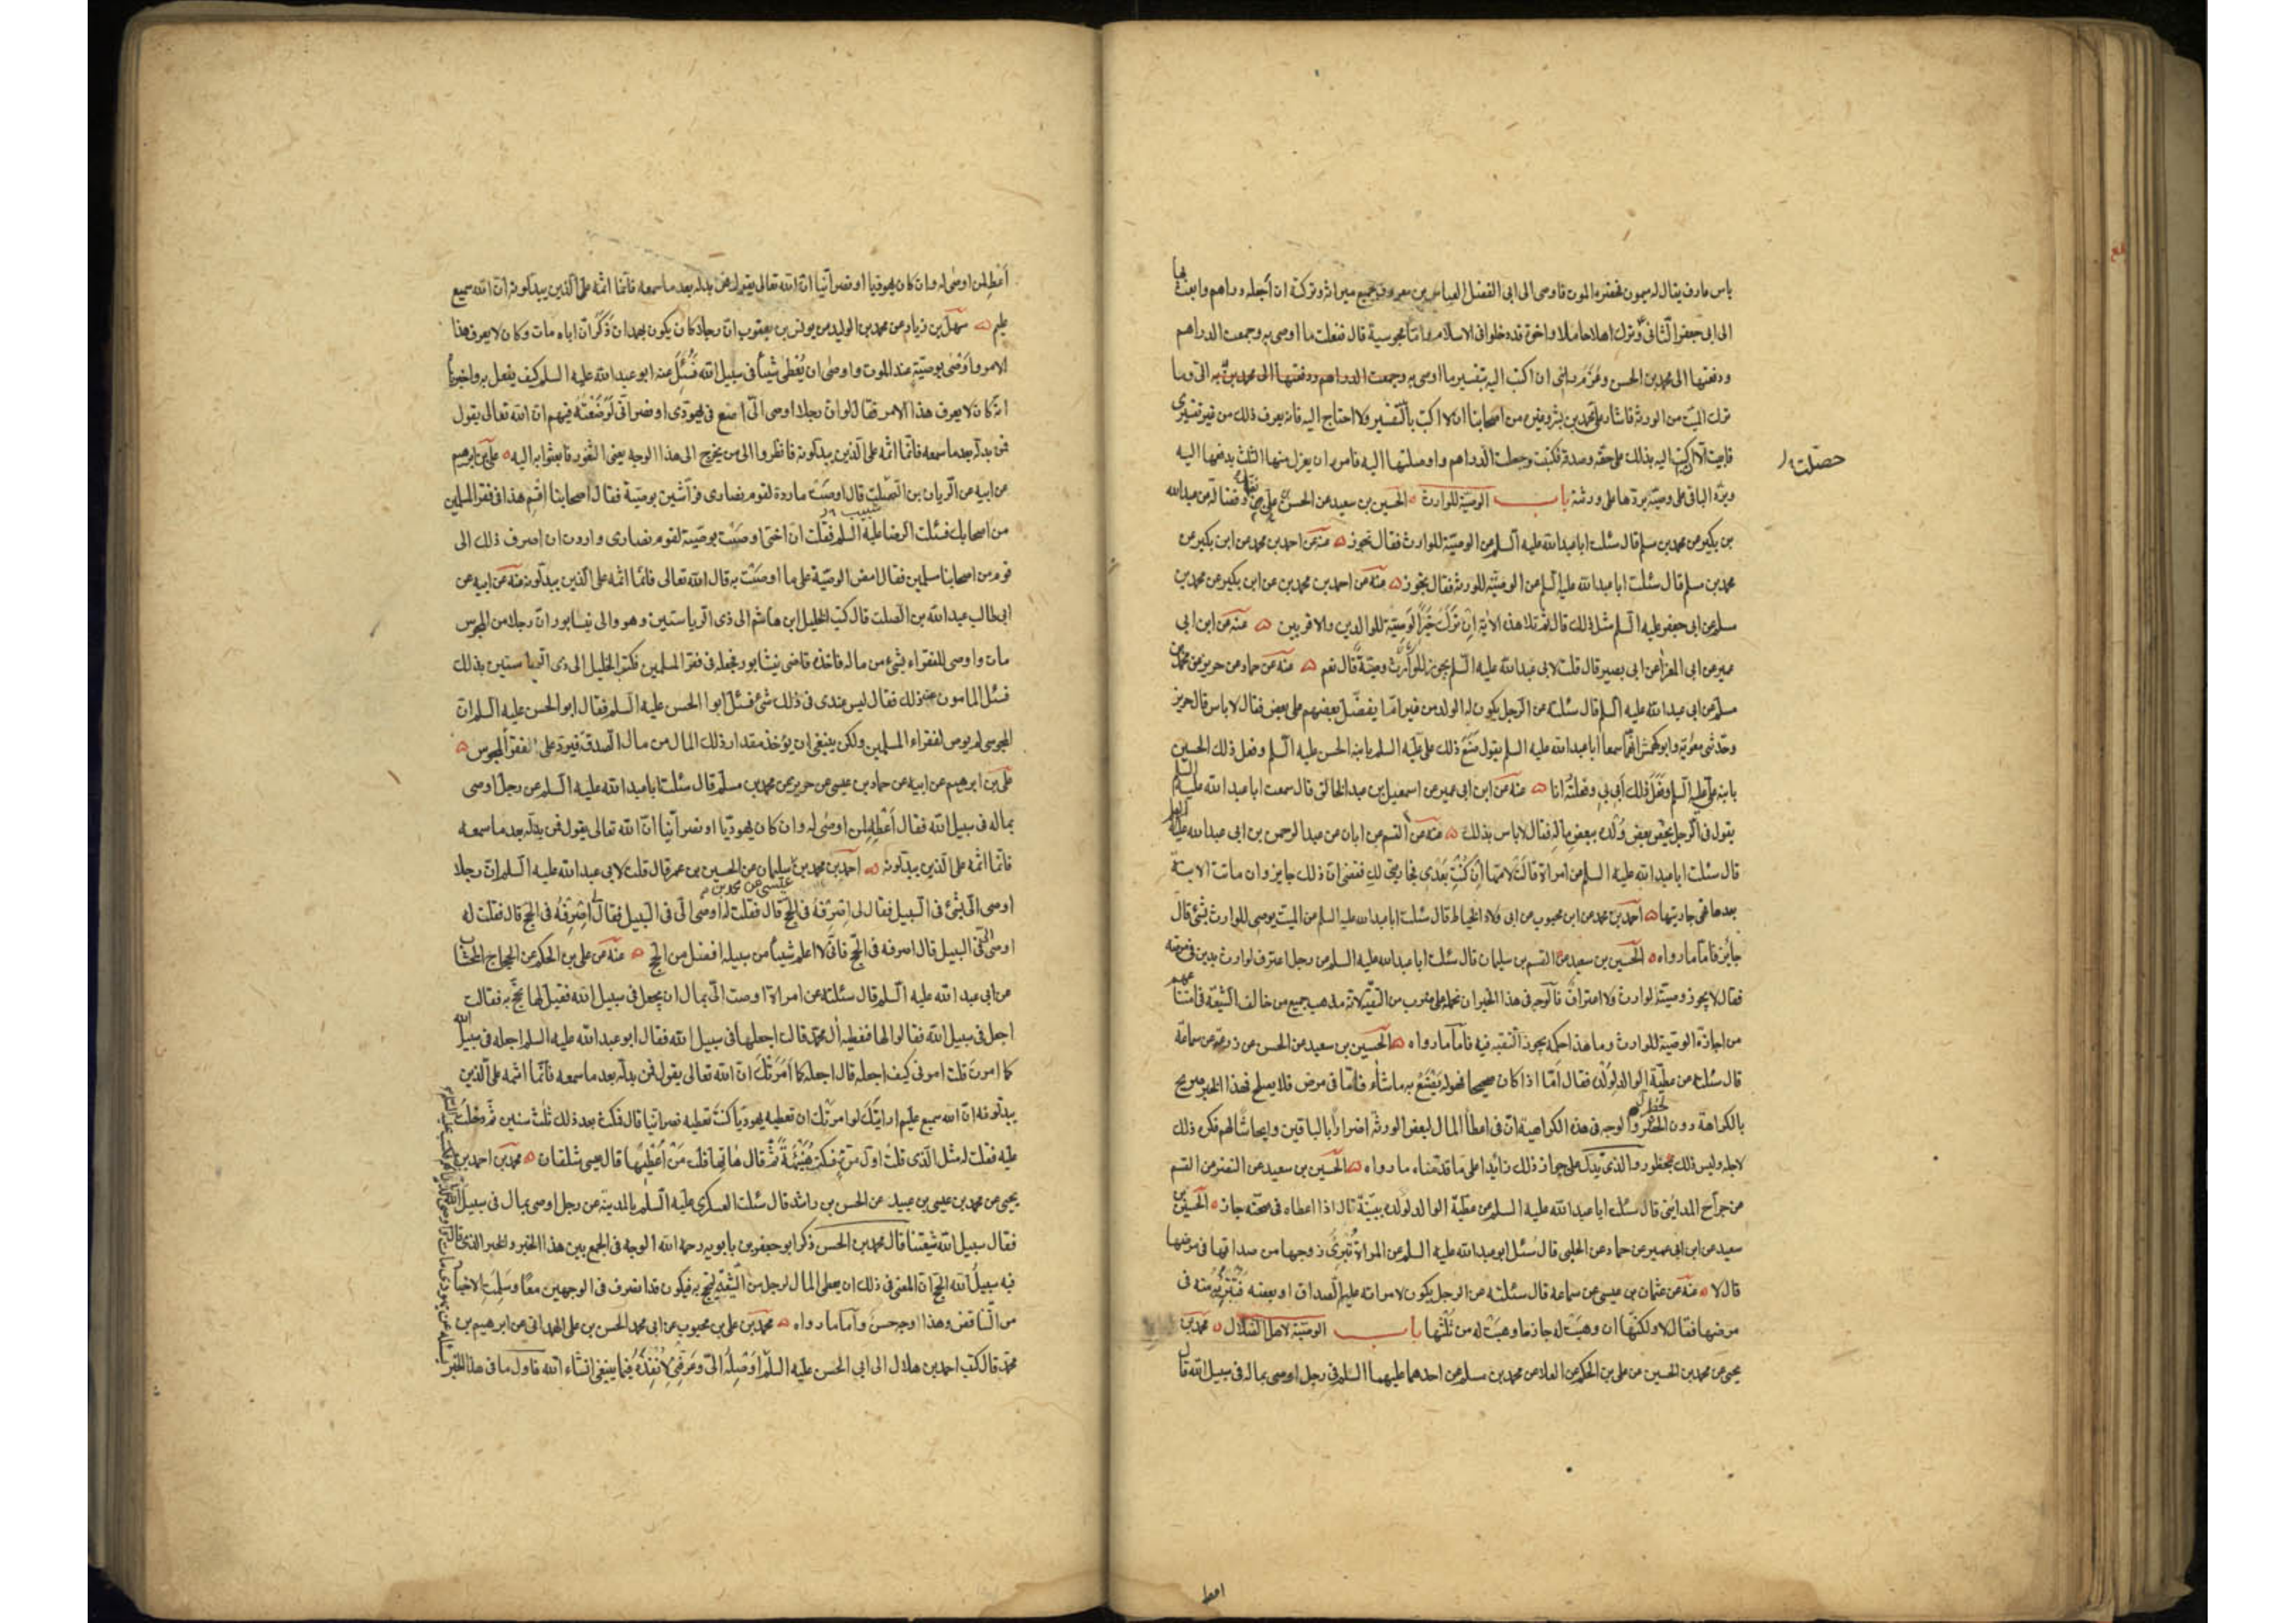 باس مارف يقال له ميمون فحضره الموت فاوصى الى ابى الفضل العباس بن معروف بجميع ميراثه وتركته ان اجعله دراهم وابعث بها
الى ابى جعفر الثانى وترك اهلا حاملا واخوة قد دخلوا فى الاسلام واما مجوسية قال ففعلت ما اوصى به وجمعت الدراهم
ودفعتها الى محمد بن الحسن وعزم رايى ان اكتب اليه بتفسير ما اوصى به وجمعت الدراهم ودفعتها الى محمد بن به الى وما
ترك الميت من الورثة فاشار على محمد بن بشر وغيره من اصحابنا ان لا اكتب بالتفسير ولا احتاج اليه فانه يعرف ذلك من غير تفسيرى
فابيت الا ان اكتب اليه بذلك على حقه وصدقه فكتبت وجعلت الدراهم واوصلتها اليه فامره ان يعزل منها الثلث يدفعها اليه
حصلت
ويرد الباقى على وصيه يردها على ورثته باب الوصية للوارث الحسين بن سعيد عن الحسن بن على وفضالة عن عبد الله
بن بكير عن محمد بن مسلم قال سئلت ابا عبد الله عليه السلم عن الوصية للوارث فقال تجوز عنه عن احمد بن محمد عن ابن بكير عن
محمد بن مسلم قال سئلت ابا عبد الله عليه السلم عن الوصية للورثة فقال يجوز عنه عن احمد بن محمد بن عن ابن بكير عن محمد بن
مسلم عن ابى جعفر عليه السلم مثل ذلك قال ثم تلا هذه الاية ان ترك خيرا الوصية للوالدين والاقربين عنه عن ابن ابى
عمير عن ابى المعزا عن ابى بصير قال قلت لابى عبد الله عليه السلم يجوز للوارث وصية قال نعم عنه عن حماد عن حريز عن محمد بن
مسلم عن ابى عبد الله عليه السلم قال سئلته عن الرجل يكون له الولد من غير ام ايفضل بعضهم على بعض فقال لا باس قال حريز
وحدثنى معوية وابو كهمش انهما سمعا ابا عبد الله عليه السلم يقول صنع ذلك على عليه السلم بابنه الحسن عليه السلم وفعل ذلك الحسين
بابنه على عليه السلم وفعل ذلك ابى بى وفعلته انا عنه عن ابن ابى عمير عن اسمعيل بن عبد الخالق قال سمعت ابا عبد الله عليه السلم
يقول فى الرجل يخص بعض ولده ببعض ماله فقال لا باس بذلك عنه عن القسم عن ابان عن عبد الرحمن بن ابى عبد الله عليه السلم
قال سئلت ابا عبد الله عليه السلم عن امراة قالت لامها ان كنت بعدى فجاريتى لك فقضى ان ذلك جايز وان ماتت الابنة
بعدها فهى جاريتها احمد بن محمد عن ابن محبوب عن ابى ولاد الحناط قال سئلت ابا عبد الله عليه السلم عن الميت يوصى للوارث بشئ قال
جايز فاما ما رواه الحسين بن سعيد عن القسم بن سليمان قال سئلت ابا عبد الله عليه السلم عن رجل اعترف لوارث بدين فى مرضه
فقال لا يجوز وصيته لوارث ولا اعتراف فالوجه فى هذا الخبر ان نحمله على ضرب من التقية لانه مذهب جميع من خالف الشيعة فامتنا عهم
من اجازة الوصية للوارث وما هذا حكمه يجوز التقية فيه فاما ما رواه الحسين بن سعيد عن الحسن عن زرعة عن سماعة
قال سئلته عن عطية الوالد لولده فقال اما اذا كان صحيحا فهو له يصنع به ما شاء فاما فى مرض فلا يصلح فهذا الخبر صريح
بالكراهة دون الحظر والوجه فى هذه الكراهية ان فى اعطا المال لبعض الورثة اضرارا بالباقين وايحاشا لهم فكره ذلك
لاجله وليس ذلك بمحظور والذى يدل على جواز ذلك زائدا على ما قدمناه ما رواه الحسين بن سعيد عن النضر عن القسم
عن جراح المداينى قال سئلت ابا عبد الله عليه السلم عن عطية الوالد لولده ببينة قال اذا اعطاه فى صحته جاز الحسين بن
سعيد عن ابن ابى عمير عن حماد عن الحلبى قال سئل ابو عبد الله عليه السلم عن المراة تبرئ زوجها من صداقها فى مرضها
قال لا عنه عن عثمان بن عيسى عن سماعة قال سئلته عن الرجل يكون لامراته عليه الصداق او بعضه فتبرئه منه فى
مرضها فقال لا ولكنها ان وهبت له جاز ما وهبت له من ثلثها باب الوصية لاهل الضلال محمد بن
يحيى عن محمد بن الحسين عن على بن الحكم عن العلا عن محمد بن مسلم عن احدهما عليهما السلم فى رجل اوصى بماله فى سبيل الله قال
اعط
اعط لمن اوصى له وان كان يهوديا او نصرانيا ان الله تعالى يقول فمن بدله بعد ما سمعه فانما اثمه على الذين يبدلونه ان الله سميع
عليم سهل بن زياد عن محمد بن الوليد عن يونس بن يعقوب ان رجلا كان يكون بهمدان ذكر ان اباه مات وكان لا يعرف هذا
الامر واوصى بوصية عند الموت واوصى ان يعطى شيئا فى سبيل الله فسئل عنه ابو عبد الله عليه السلم كيف يفعل به واخبرناه
انه كان لا يعرف هذا الامر فقال لو ان رجلا اوصى الى ان اضع فى يهودى او نصرانى لوضعته فيهم ان الله تعالى يقول
فمن بدله بعد ما سمعه فانما اثمه على الذين يبدلونه فانظروا الى من يخرج الى هذا الوجه يعنى الثغور فابعثوا به اليه على بن ابرهيم
عن ابيه عن الريان بن الصلت قال اوصت ماردة لقوم نصارى فراشين بوصية فقال اصحابنا اقسم هذا فى فقر المسلمين
من اصحابك فسئلت الرضا عليه السلم فقلت ان اختى اوصت بوصية لقوم نصارى واردت ان اصرف ذلك الى
قوم من اصحابنا مسلمين فقال امض الوصية على ما اوصت به قال الله تعالى فانما اثمه على الذين يبدلونه عنه عن ابيه عن
ابى طالب عبد الله بن الصلت قال كتب الخليل ابن هاشم الى ذى الرياستين وهو والى نيسابور ان رجلا من المجوس
مات واوصى للفقراء بشئ من ماله فاخذه قاضى نيشابور فجعله فى فقر المسلمين فكتب الخليل الى ذى الرياستين بذلك
فسئل المامون عن ذلك فقال ليس عندى فى ذلك شئ فسئل ابوا الحسن عليه السلم فقال ابو الحسن عليه السلم ان
المجوسى لم يوص لفقراء المسلمين ولكن ينبغى ان يؤخذ مقدار ذلك المال من مال الصدقة فيرد على الفقرا المجوس
على بن ابرهيم عن ابيه عن حماد بن عيسى عن حريز عن محمد بن مسلم قال سئلت ابا عبد الله عليه السلم عن رجل اوصى
بماله فى سبيل الله فقال اعطه لمن اوصى له وان كان يهوديا او نصرانيا ان الله تعالى يقول فمن بدله بعد ما سمعه
فانما اثمه على الذين يبدلونه احمد بن محمد بن سليمان عن الحسين بن عمر قال قلت لابى عبد الله عليه السلم ان رجلا
عيسى عن محمد بن
اوصى الى بشئ فى السبيل فقال لى اصرفه فى الحج قال فقلت له اوصى الى فى السبيل فقال اصرفه فى الحج قال فقلت له
اوصى الى فى السبيل قال اصرفه فى الحج فانى لا اعلم شيئا من سبيله افضل من الحج عنه عن على بن الحكم عن الحجاج الخشاب
عن ابى عبد الله عليه السلم قال سئلته عن امراة اوصت الى بمال ان يجعل فى سبيل الله فقيل لها يحج به فقالت
اجعل فى سبيل الله فقالوا لها فنعطيه ال محمد قالت اجعلها فى سبيل الله فقال ابو عبد الله عليه السلم اجعله فى سبيل الله
كما امرت قلت امرنى كيف اجعله قال اجعله كما امرتك ان الله تعالى يقول فمن بدله بعد ما سمعه فانما اثمه على الذين
يبدلونه ان الله سميع عليم ارايتك لو امرتك ان تعطيه يهوديا كنت تعطيه نصرانيا قال فمكث بعد ذلك ثلث سنين ثم دخلت
عليه فقلت له مثل الذى قلت اول مرة فسكت هنيئة ثم قال هاتها قلت من اعطيها قال عيسى شلقان محمد بن احمد بن
يحيى عن محمد بن عيسى بن عبيد عن الحسن بن راشد قال سئلت العسكرى عليه السلم بالمدينة عن رجل اوصى بمال فى سبيل الله
فقال سبيل الله شيعتنا قال محمد بن الحسن ذكر ابو جعفر بن بابويه رحمه الله الوجه فى الجمع بين هذا الخبر والخبر الذى قال
فيه سبيل الله الحج ان المعنى فى ذلك ان يعطى المال لرجل من الشيعة ليحج به فيكون قد انصرف فى الوجهين معا وسلمت الاخبار
من التناقض وهذا وجه حسن واما ما رواه محمد بن على بن محبوب عن ابى محمد الحسن بن على الهمدانى عن ابرهيم بن
محمد قال كتب احمد بن هلال الى ابى الحسن عليه السلم
اوصله الى وعرفنى لانفذه فيما ينبغى انشاء الله فاول ما فى هذا الخبر